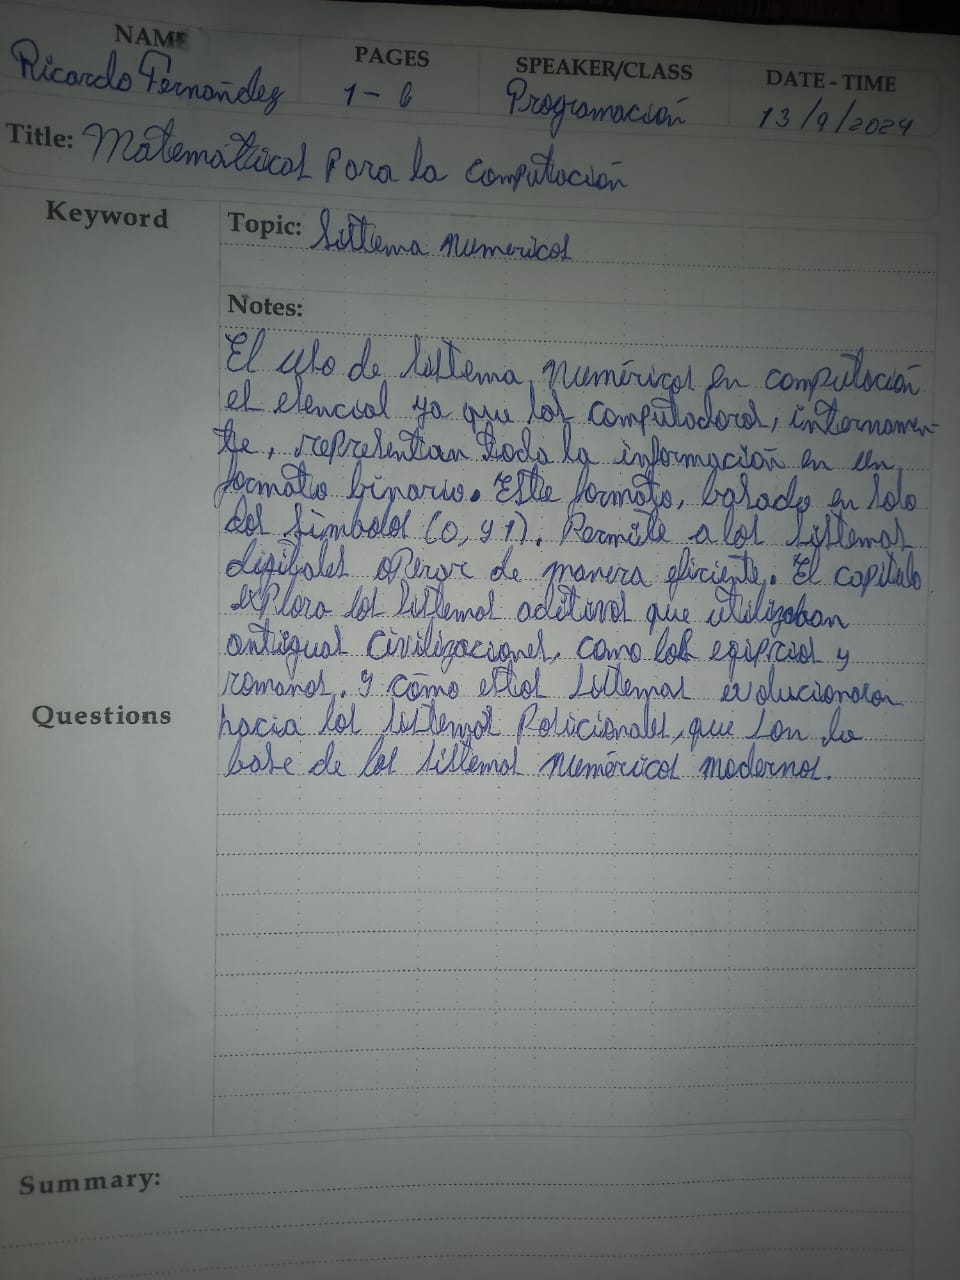 NAME
PAGES
SPEAKER/CLASS
DATE - TIME
Ricardo Fernández
1 - 6
Programación
13/9/2024
Title: Matemáticas para la computación
Keyword
Topic: Sistema numericos
Notes:
El uso de sistema numéricos en computación
es esencial ya que las computadoras, internamen-
te, representan toda la información en un
formato binario. Este formato, basado en solo
dos símbolos (0, y 1). Permite a los sistemas
digitales operar de manera eficiente. El capítulo
explora los sistemas aditivos que utilizaban
antiguas civilizaciones, como los egipcios y
romanos. y cómo estos sistemas evolucionaron
hacia los sistemas posicionales, que son la
base de los sistemas numéricos modernos.
Questions
Summary: